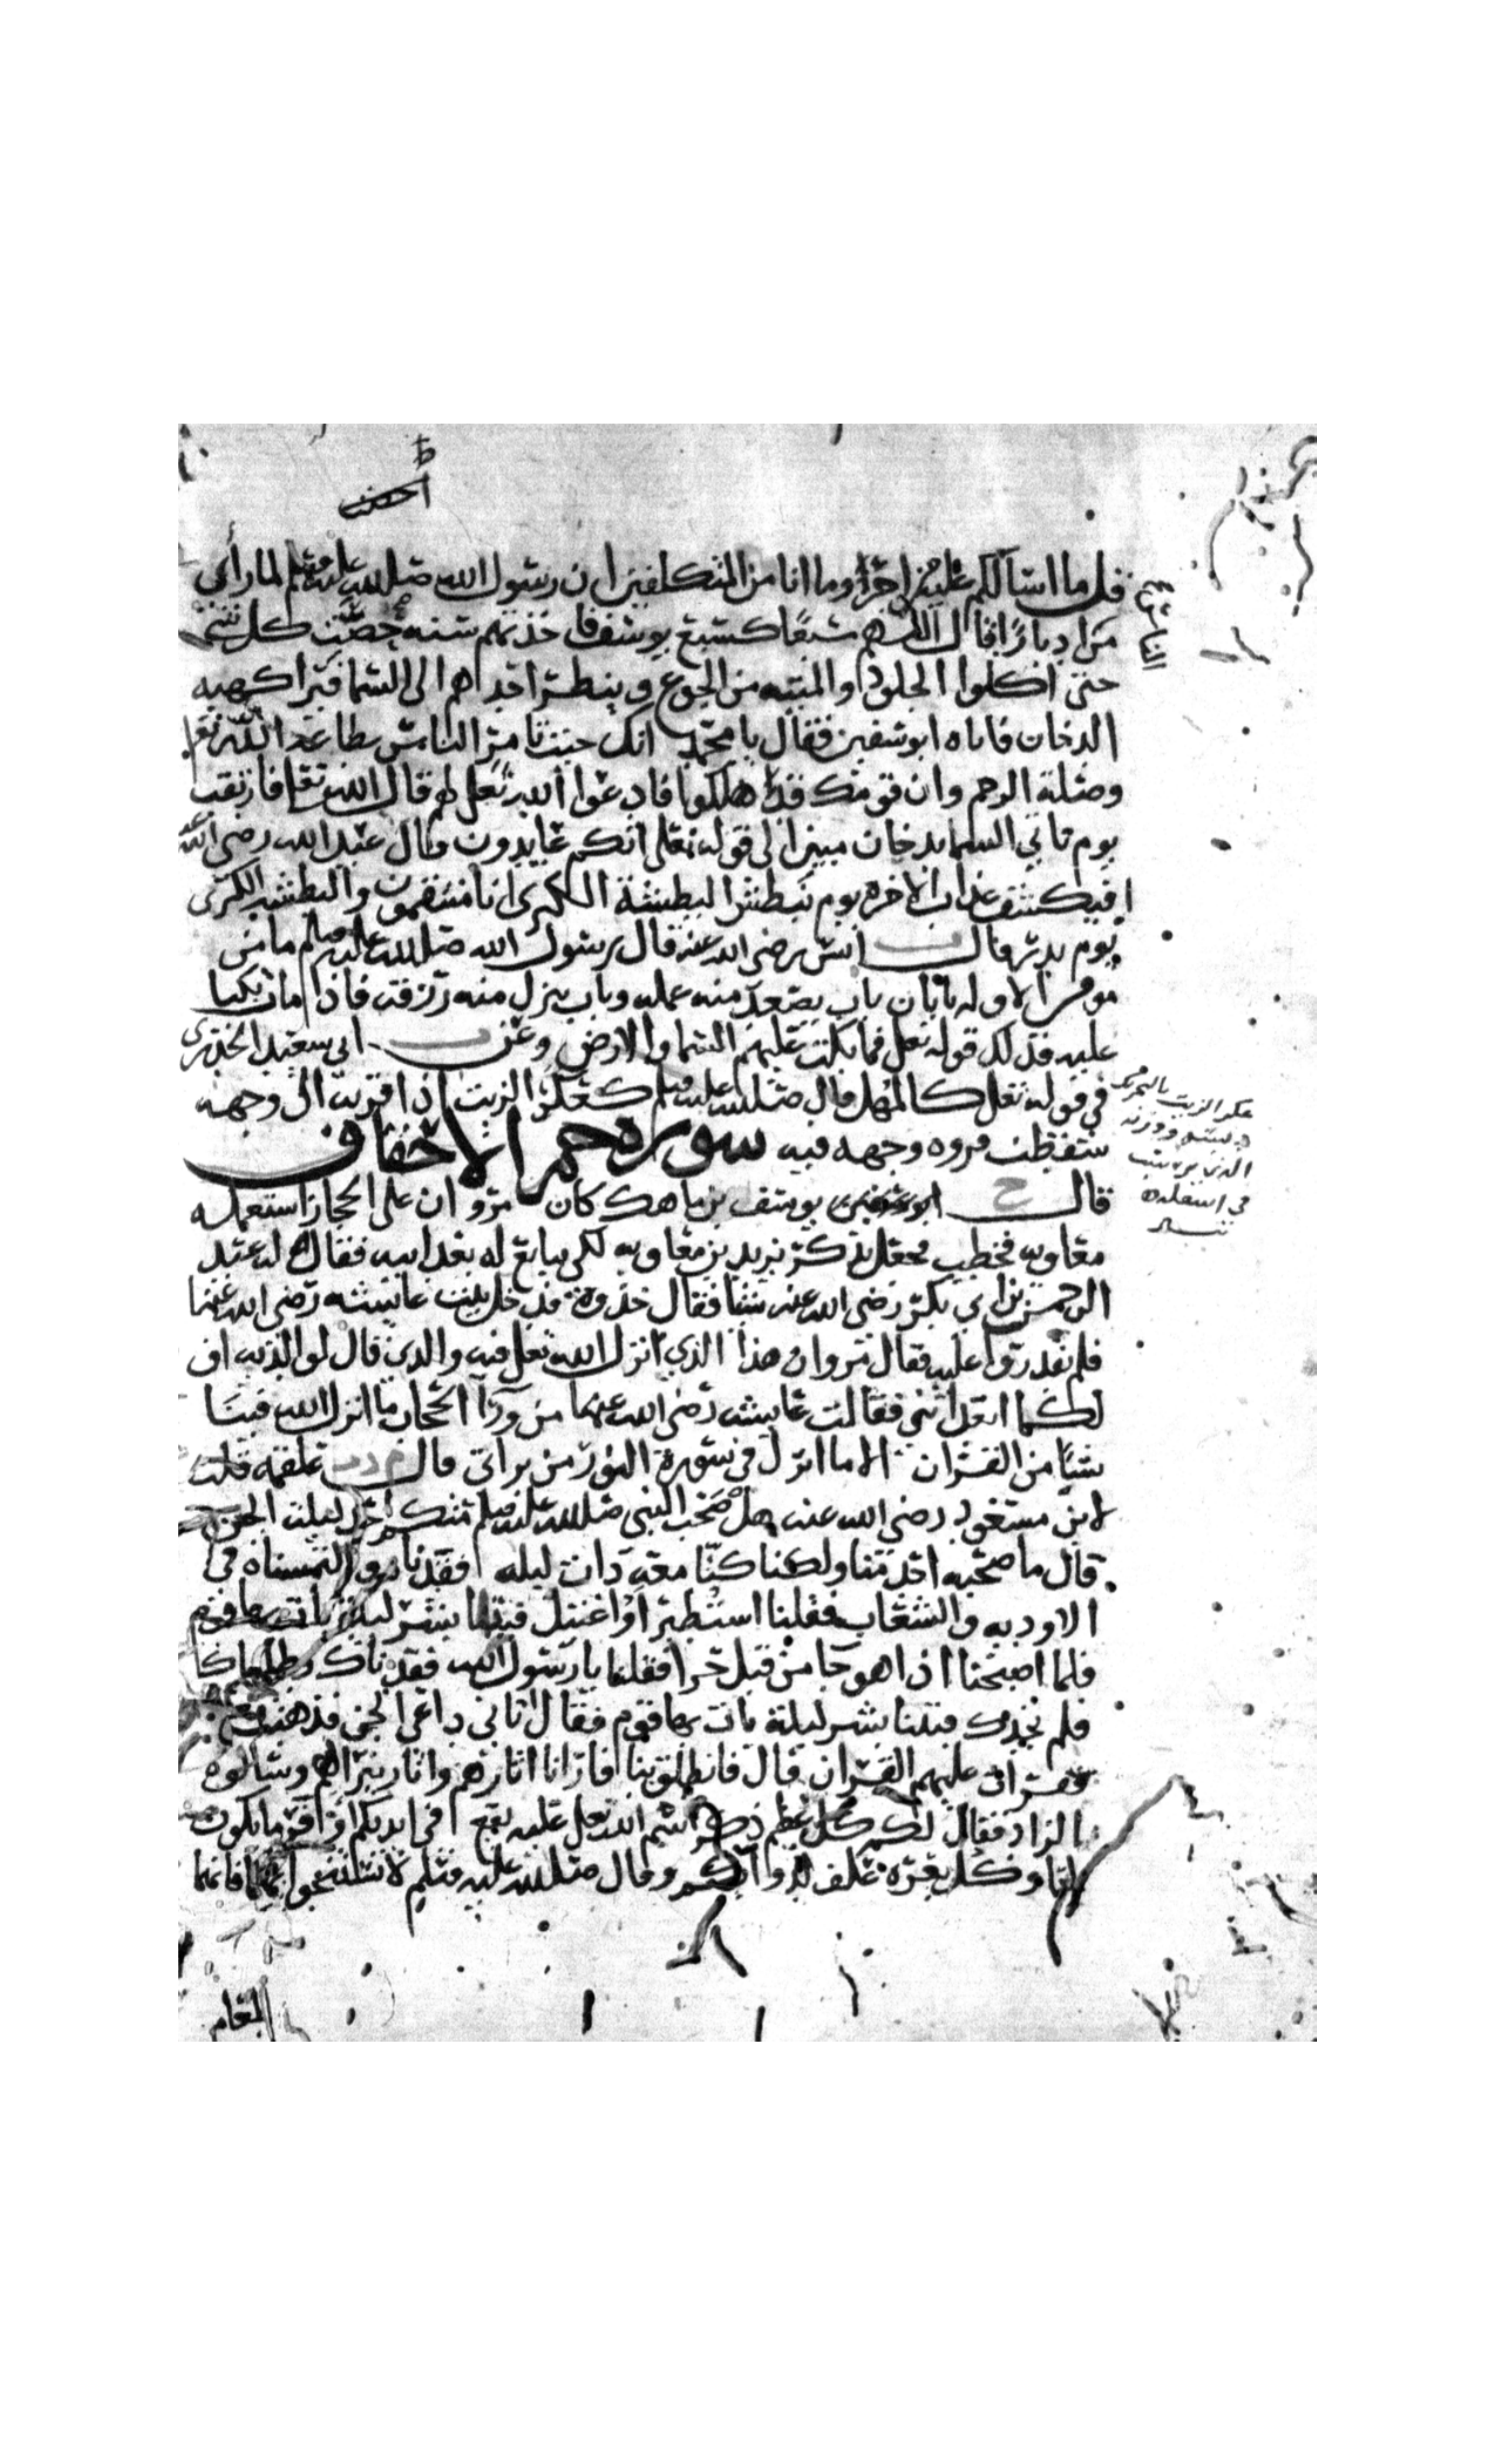 قل ما اسألكم عليه من اجر وما انا من المتكلفين ان رسول الله صلى الله عليه وسلم لما رأى
من ادبارا فقال اللهم سبعا كسبع يوسف فاخذتهم سنه حصت كل شي
حتى اكلوا الجلود والميته من الجوع وينظر احدهم الى السما فيرا كهيه
الدخان فاتاه ابو سفين فقال يا محمد انك جيت تامر الناس بطاعة الله تعا
وصلة الرحم وان قومك قد هلكوا فادعوا الله تعلى لهم قال الله تعا فارتقب
يوم تاتي السما بدخان مبين الى قوله تعلى انكم عايدون قال عبد الله رضي الله عنه
افيكشف عذاب الاخرة يوم نبطش البطشة الكبرى انا منتقمون والبطشه الكبرى
يوم بدر وقال ت انس رضي الله عنه قال رسول الله صلى الله عليه وسلم ما من
مومن الا وله بابان باب يصعد منه عمله وباب ينزل منه رزقه فاذا مات بكيا
عليه فذلك قوله تعلى فما بكت عليهم السما والارض وعن ت ابي سعيد الخدري
في قوله تعلى كالمهل قال صلى الله عليه وسلم كعكر الزيت اذا قربه الى وجهه
سقطت فروه وجهه فيه سورة حم الاحقاف
قال خ يوسف بن ماهك كان مروان على الحجاز استعمله
معاويه فخطب فجعل يذكر يزيد بن معاويه لكي يبايع له بعد ابيه فقال له عبد
الرحمن بن ابي بكر رضي الله عنه شيا فقال خذوه فدخل بيت عايشه رضي الله عنها
فلم يقدروا عليه فقال مروان هذا الذي انزل الله تعلى فيه والذي قال لوالديه اف
لكما اتعدانني فقالت عايشه رضي الله عنها من ورآ الحجاب ما انزل الله فينا
شيا من القران الا ما انزل في سورة النور من براتي قال م د ت علقمه قلت
لابن مسعود رضي الله عنه هل صحب النبي صلى الله عليه وسلم منكم احد ليلة الجن
قال ما صحبه احد منا ولكنا كنا معه ذات ليله ففقدناه والتمسناه في
الاوديه والشعاب فقلنا استطير او اغتيل فبتنا بشر ليله بات بها قوم
فلما اصبحنا اذا هو جا من قبل حرا فقلنا يا رسول الله فقدناك وطلبناك
فلم نجدك فبتنا بشر ليلة بات بها قوم فقال اتاني داعي الجن فذهبت معه
فقرات عليهم القران قال فانطلق بنا فارانا اثارهم واثار نيرانهم وسالوه
الزاد فقال لكم كل عظم ذكر اسم الله تعلى عليه يقع في ايديكم اوفر ما يكون
لحما وكل بعره علف لدوابكم وقال صلى الله عليه وسلم لا تستنجوا بهما فانهما
عكر الزيت بالتحريك
في اسفله